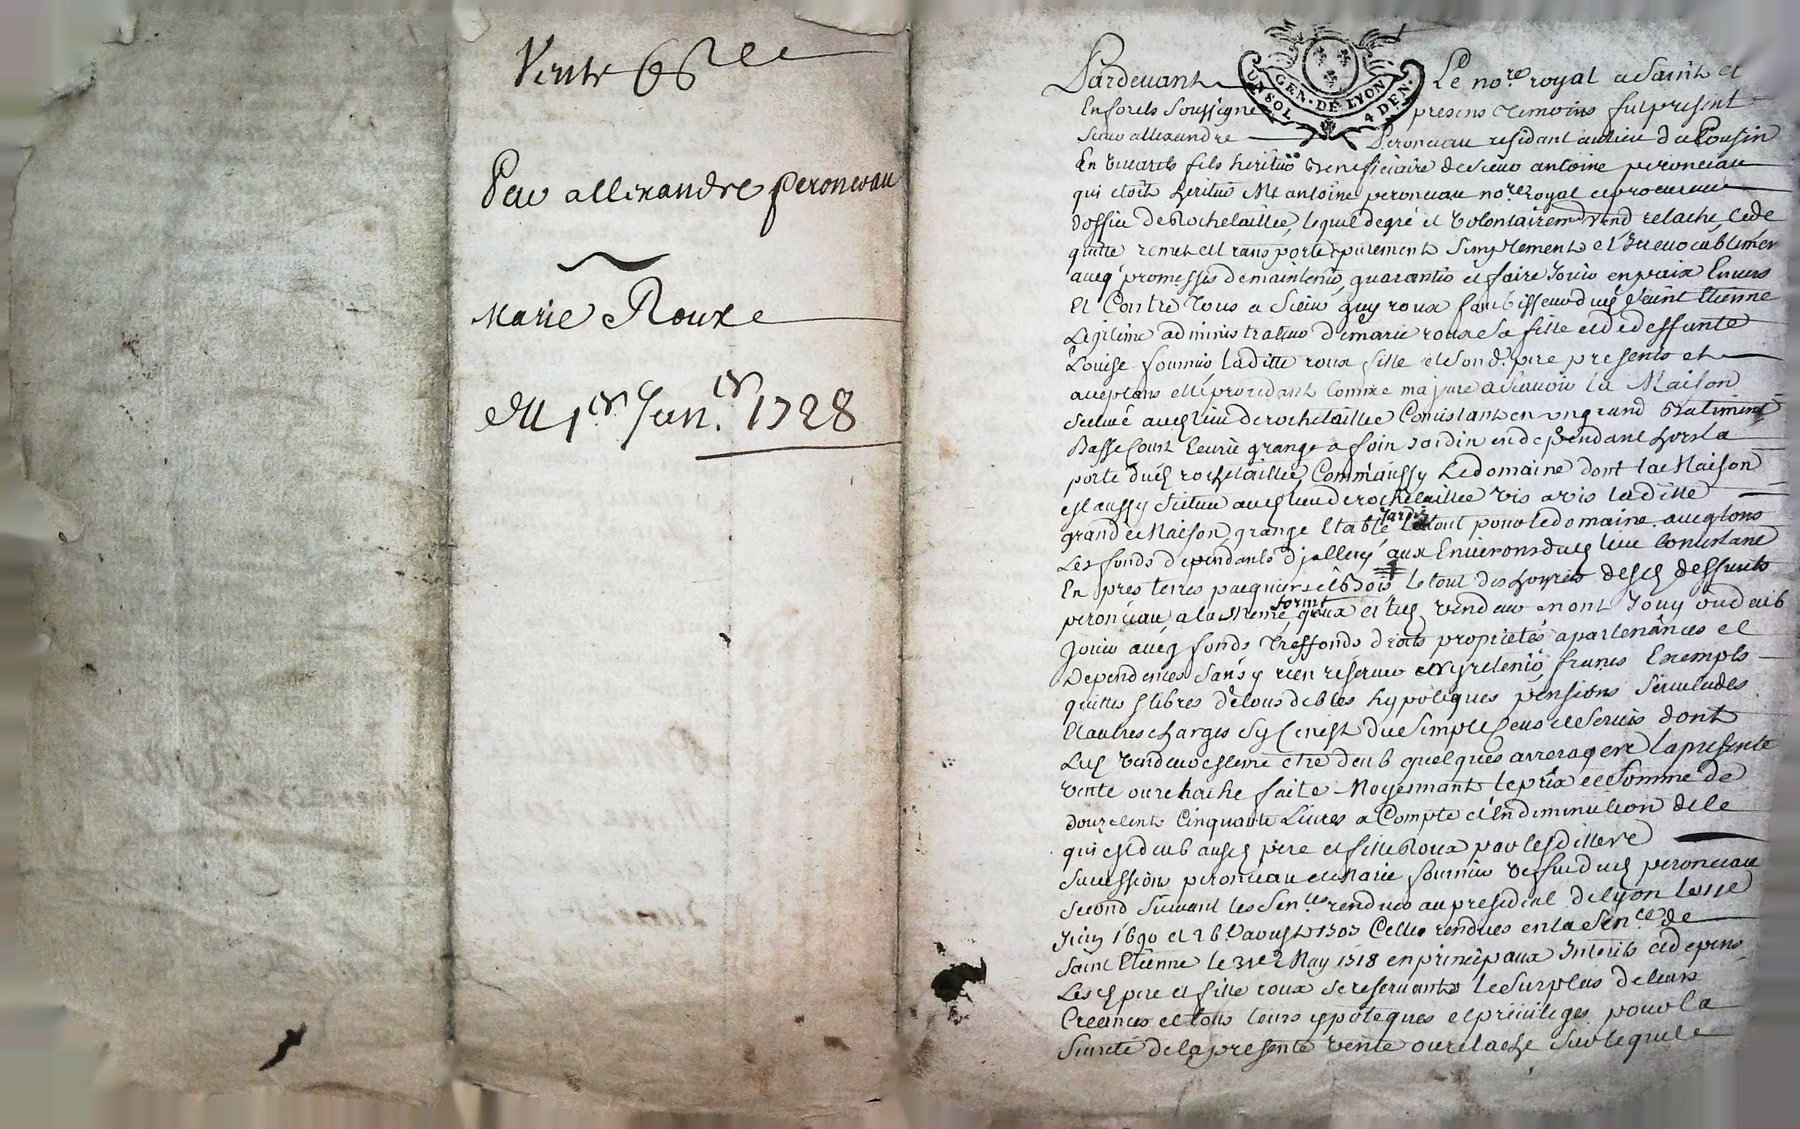 Vente
Par allexandre peroneau
Marie Roux
du 1er Janer 1728
GEN. DE LYON
UN SOL 4 DEN.
Pardevant Le nore royal a Saint et
Enforets soussigne presens temoins fut present
sieur allexandre Peroneau residant au lieu du Pousin
En vivarets fils heritier beneficiaire de sieur antoine peroneau
qui etoit heritier Me antoine peroneau nore royal et procureur
doffice de Rochetaillee, lequel de gré et volontairemt vend relache cede
quitte remet et transporte purement simplement et Irrevocablemen
aveq promesses de maintenir guarantir et faire Jouir en paix Envers
Et Contre Tous a sieur guy roux fourbisseur dud Saint Etienne
Legitime administrateur de marie roux sa fille et de deffunte
Louise fournier laditte roux fille et sond pere presents et
aceptans elle procedant comme majure a scavoir la Maison
scitué aud lieu de rochetaillee Consistant en un grand Batiment
Basse Court Ecurie grange a foin Jardin en dependant hors la
porte dud rochetaillee, Comm'aussy Le domaine dont la Maison
est aussy scitue aud lieu de rochetaillee vis a vis laditte
grande Maison grange Etable Jardin Le tout pour le domaine aveq tous
Les fonds dependants d'jcelluy aux Environs dud lieu Consistant
En pres terres paquiers et Bois le tout des hoyries desd deffunts
peroneau, a la meme forme queux et led vendeur en ont Jouy ou deub
Jouir aveq fonds treffonds droits proprietés apartenances et
Dependences sans y rien reserver ny retenir francs Exempts
quittes & libres de tous debtes hypoteques pensions servitudes
Et autres charges sy ce nest du simple Cens et servis dont
Led vendeur estime etre deub quelques arrerages la presente
vente ou relache faite Moyennant le prix et somme de
douze cents Cinquante Livres a Compte et En diminution de ce
qui est deub ausd pere et fille Roux par lesdittes
sucession peroneau et Marie fournier veffue dud peroneau
second suivant les Sences rendues au presidial de Lyon
Juin 1690 et 26 aoust 1707 Celles rendues en la Sence de
Saint Etienne le 31e May 1718 en principaux Interets et depens
Lesd pere et fille roux se reservants le surplus de leurs
Creances et tous leurs ypoteques et privileges pour la
sureté de la presente vente ou relache sur lequel